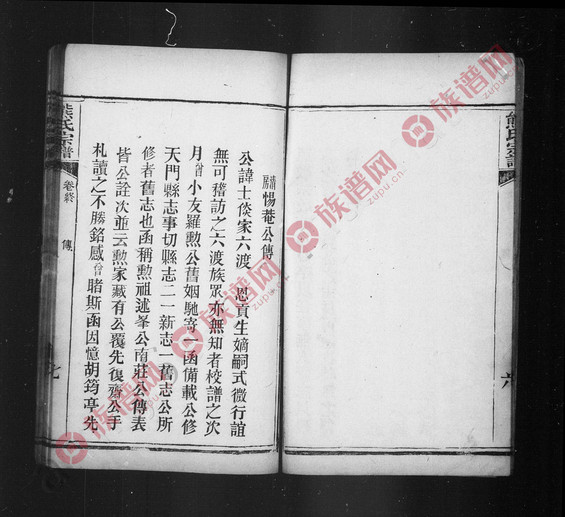 熊氏宗譜
清房惕菴公傳
公諱士倓家六渡 恩貢生嫡嗣式微行誼
無可稽訪之六渡族眾亦無知者校譜之次
月曾小友羅勲公舊姻馳寄一函備載公修
天門縣志事切縣志二一新志一舊志公所
修者舊志也函稱勲祖述峯公南莊公傳表
皆公詮次並云勲家藏有公覆先復齋公手
札讀之不勝銘感曾睹斯函因憶胡筠亭先
熊氏宗譜
卷終
傳
族谱网
zupu.cn
族谱网
zupu.cn
族谱网
zupu.cn